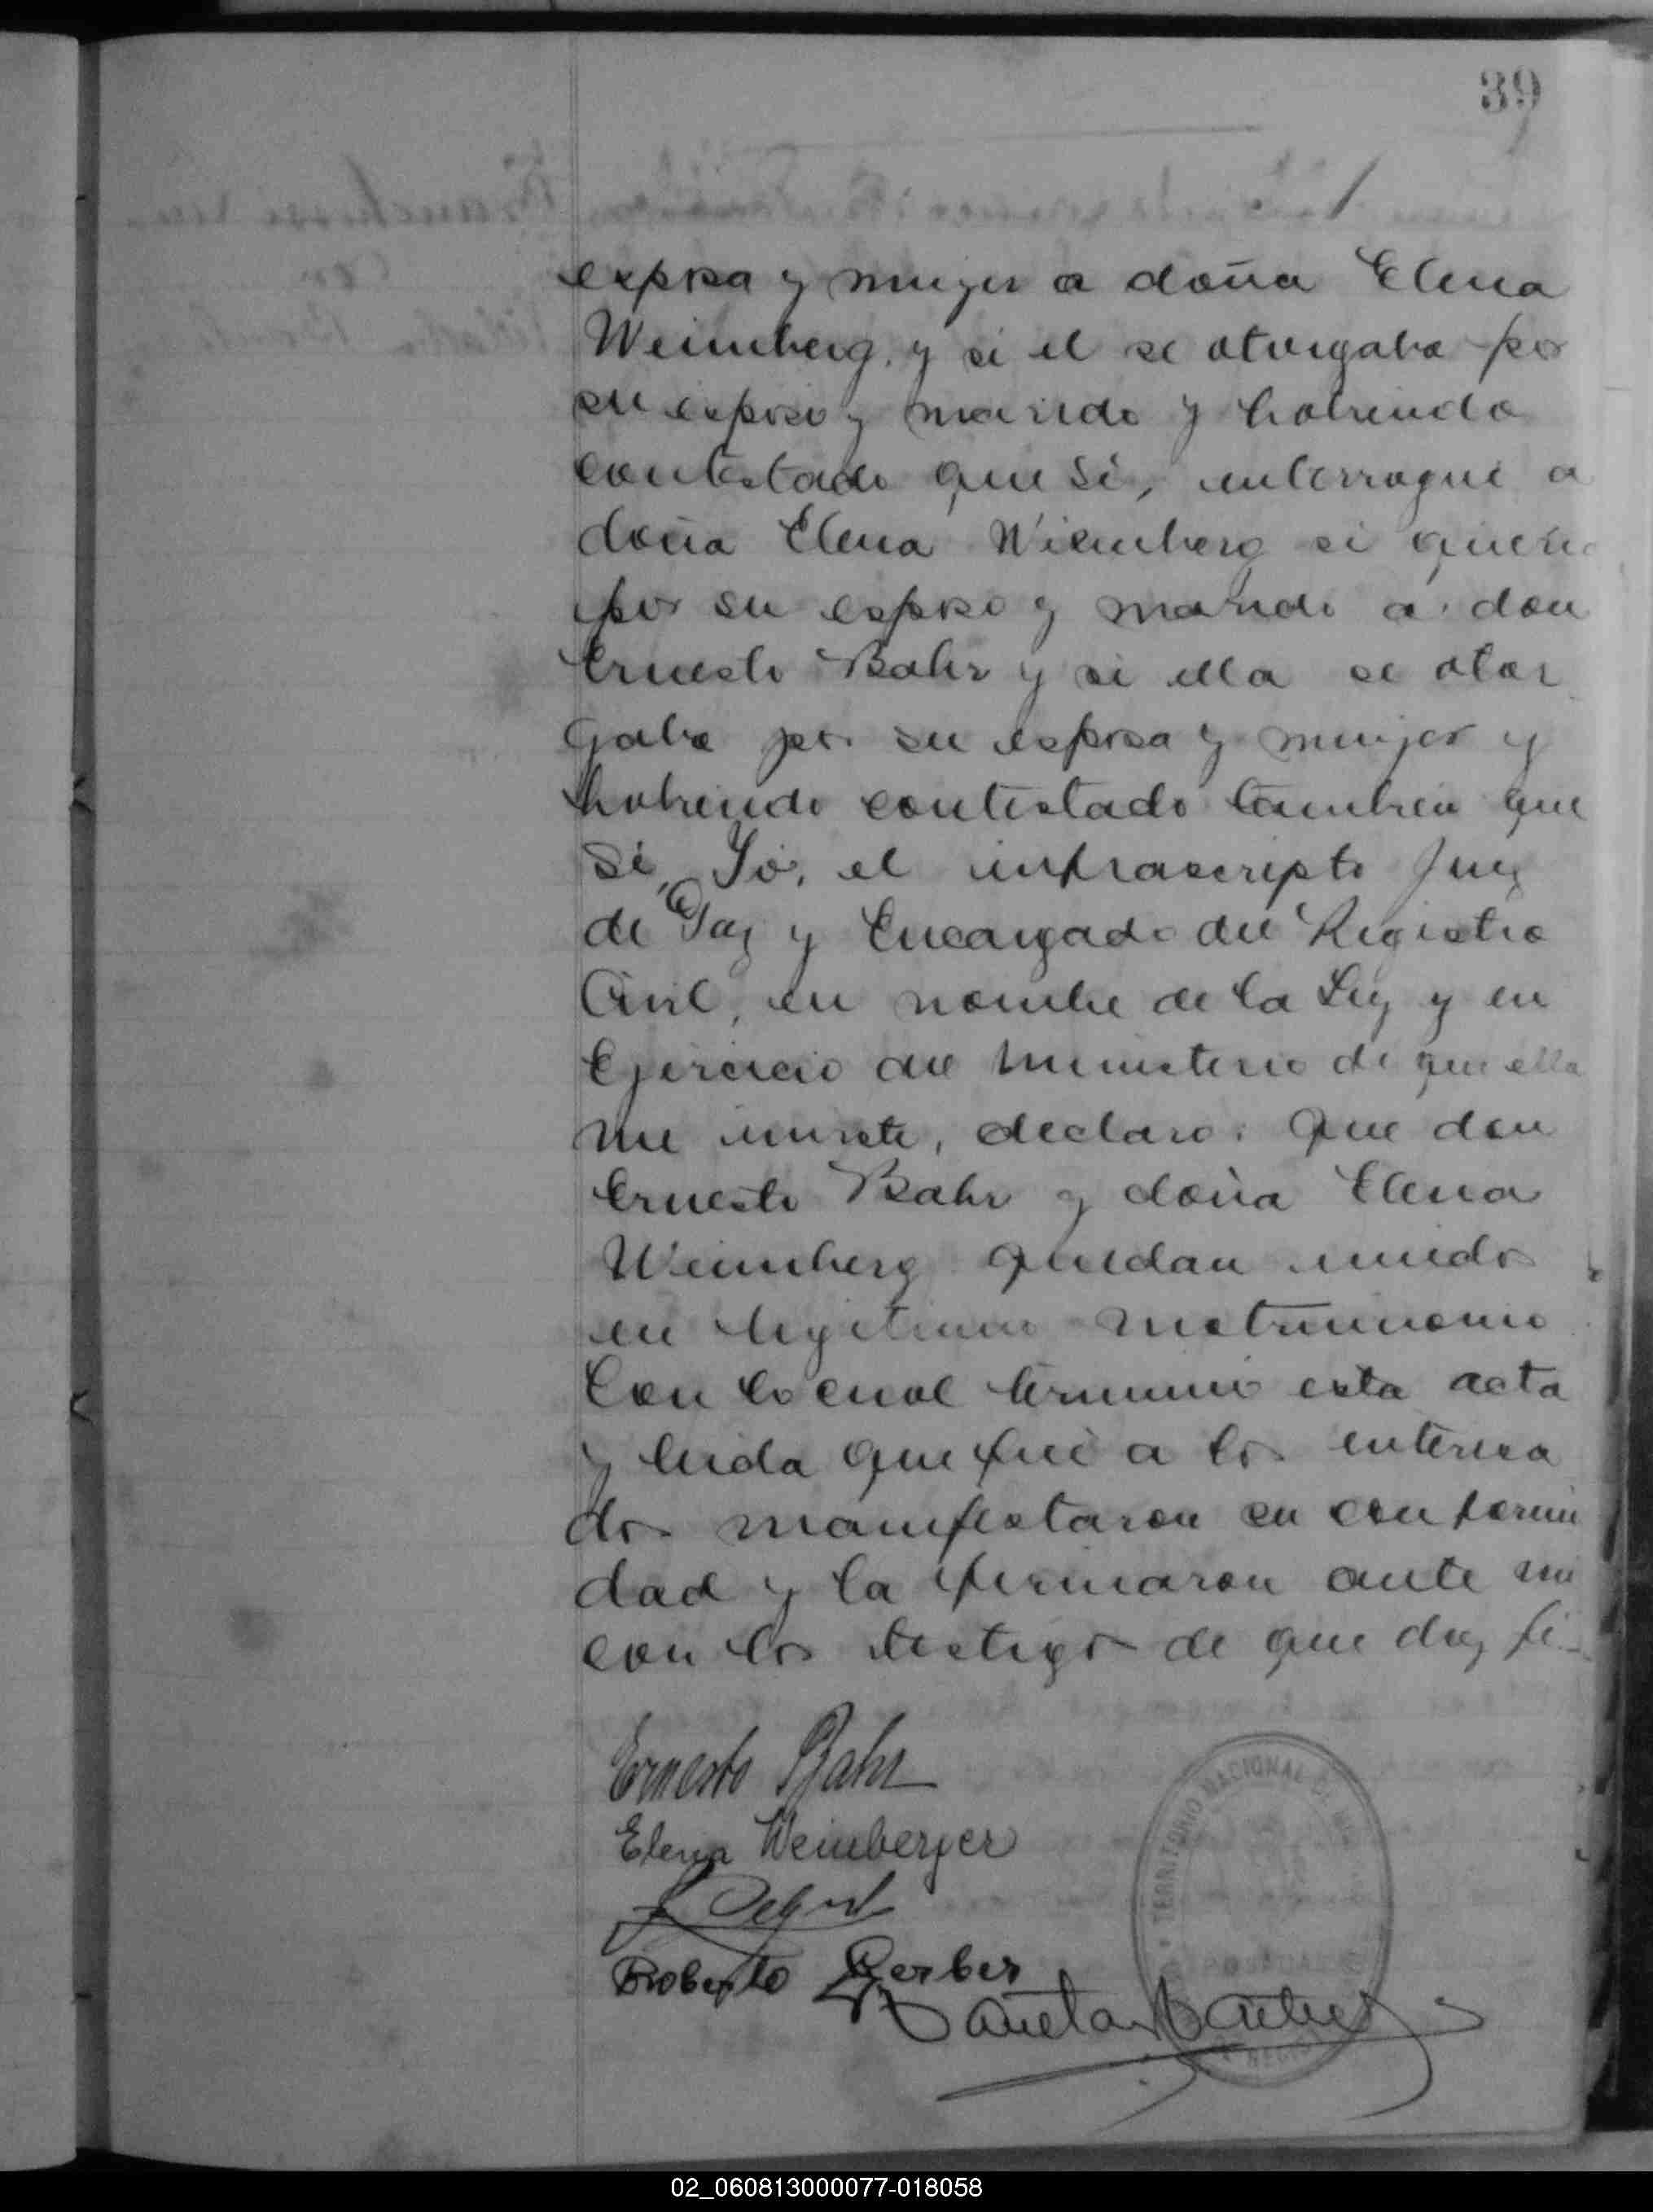 39
esposa y mujer a doña Elena
Weimberg, y si el se otorgaba por
su esposo y marido y habiendo
contestado que Si, interrogué a
doña Elena Wiemberg si queria
por su esposo y marido a don
Ernesto Bahr y si ella se otor
gaba por su esposa y mujer y
habiendo contestado tambien que
Si, Yó, el infrascripto Juez
de Paz y Encargado del Registro
Civil, en nombre de la Ley y en
Ejercicio del Ministerio de que ella
me inviste, declaro: Que don
Ernesto Bahr y doña Elena
Weimberg quedan unidos
en legitimo matrimonio
Con lo cual termino esta acta
y leida que fué a los interesa
dos manifestaron su conformi
dad y la firmaron ante mi
con los testigos de que doy fé
Ernesto Bahr
Elena Weinberger
Roberto Gerber
TERRITORIO NACIONAL DE
POSADAS
02_060813000077-018058